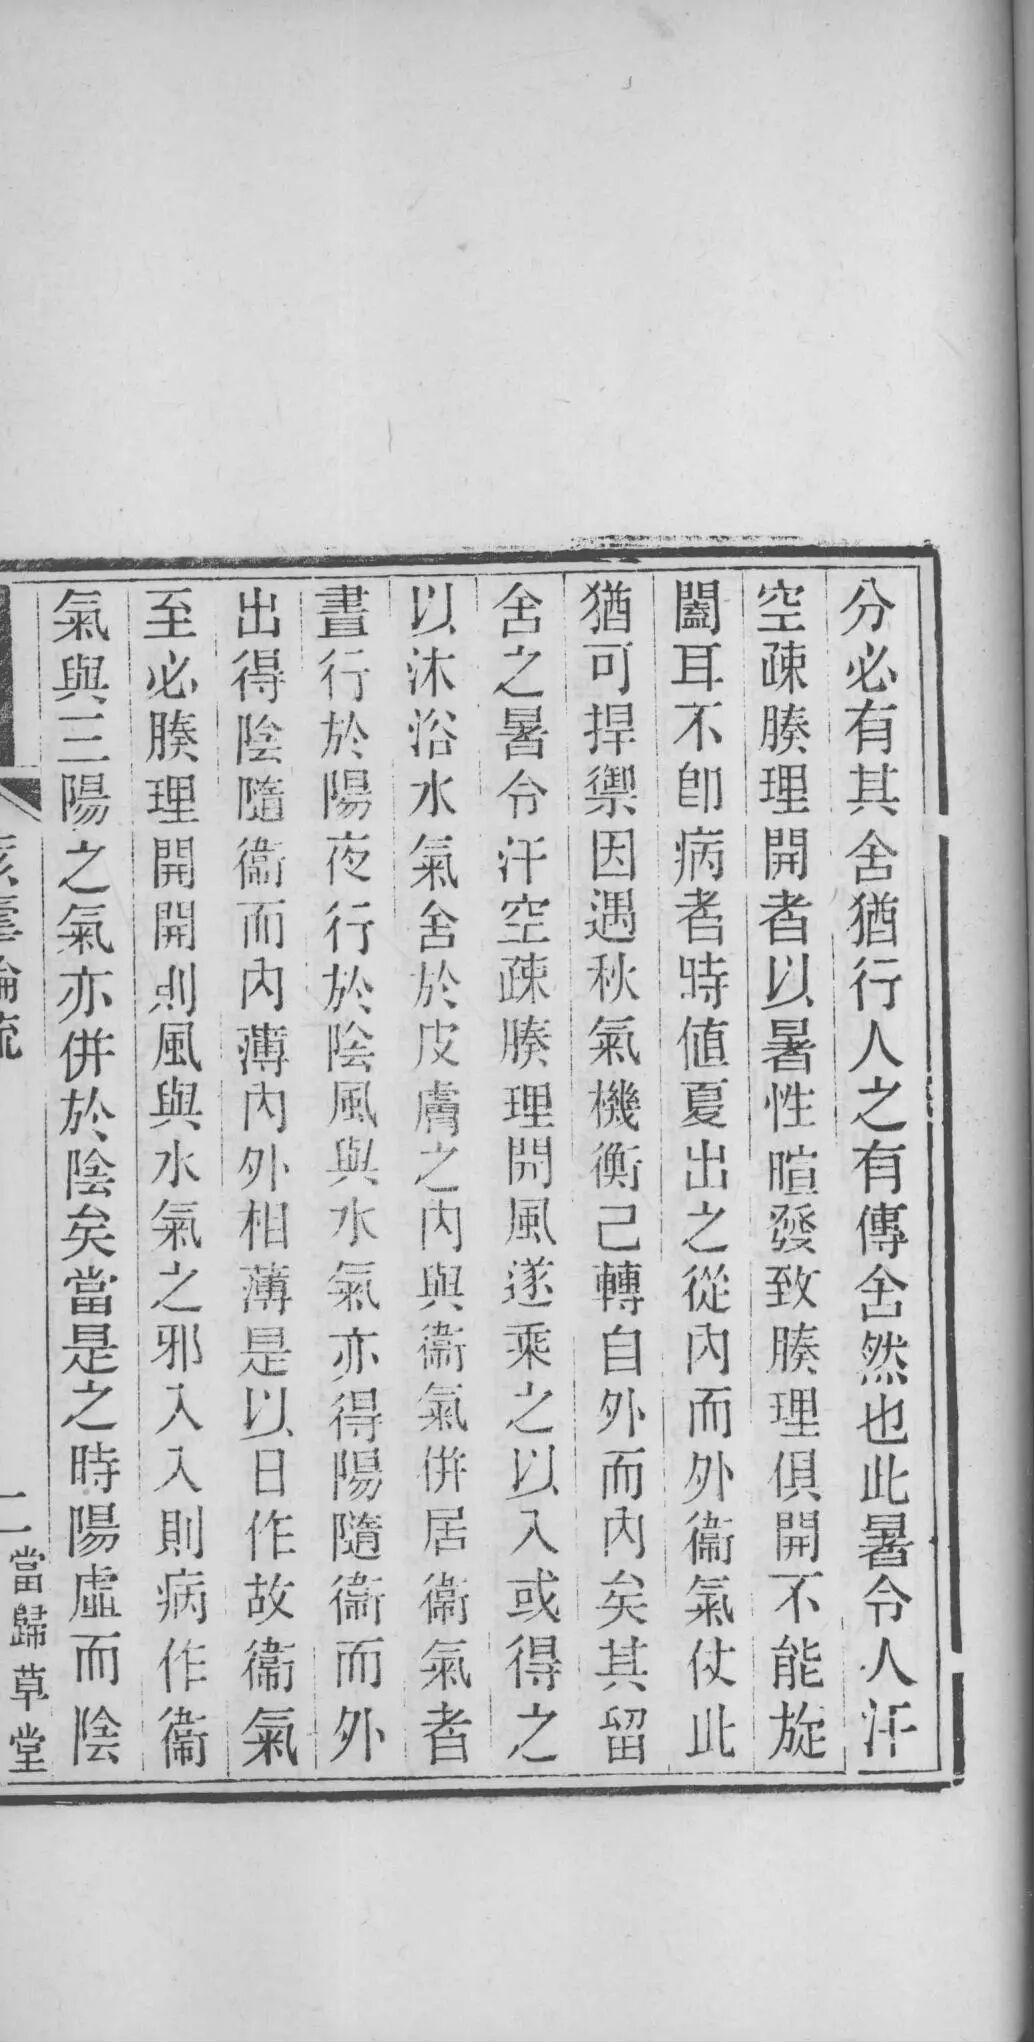 分必有其舍猶行人之有傳舍然也此暑令人汗
空疎腠理開者以暑性暄發致腠理俱開不能旋
闔耳不卽病者時值夏出之從內而外衞氣仗此
猶可捍禦因遇秋氣機衡已轉自外而內矣其留
舍之暑令汗空疎腠理開風遂乘之以入或得之
以沐浴水氣舍於皮膚之內與衞氣併居衞氣者
晝行於陽夜行於陰風與水氣亦得陽隨衞而外
出得陰隨衞而內薄內外相薄是以日作故衞氣
至必腠理開開則風與水氣之邪入入則病作衞
氣與三陽之氣亦併於陰矣當是之時陽虛而陰
痎瘧論疏
二當歸草堂